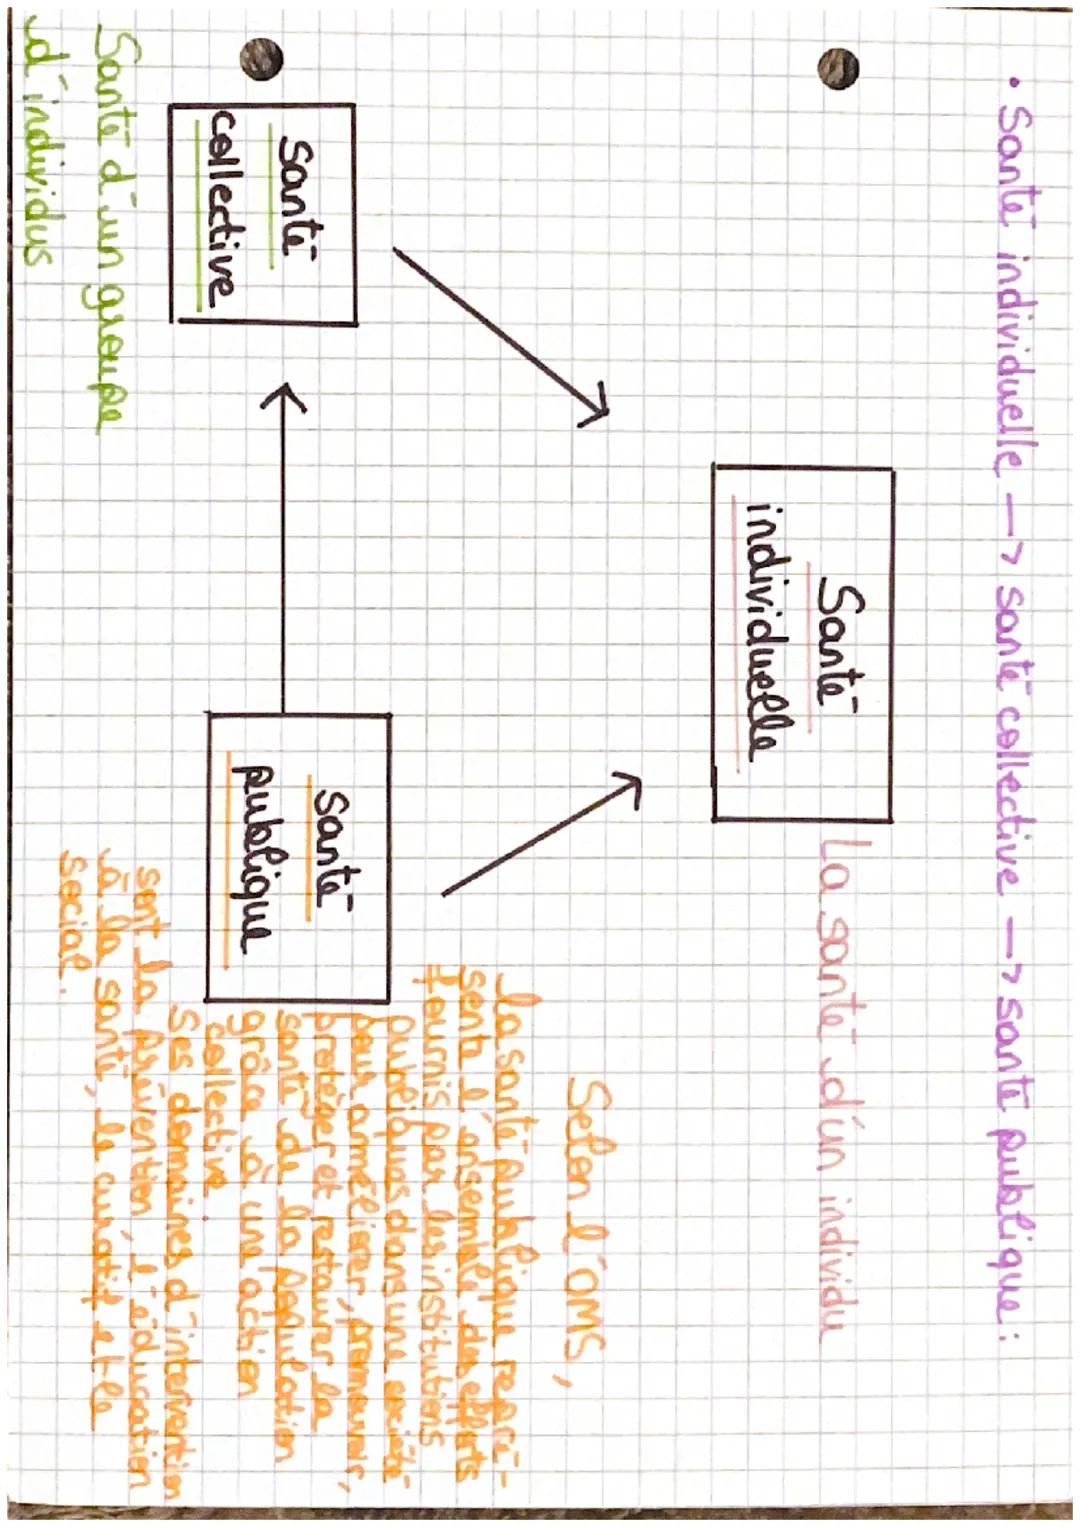 • Santé individuelle → santé collective → santé publique :
Santé
individuelle
La santé d'un individu
Santé
collective
Santé d'un groupe
d'individus
Santé
publique
Selon l'OMS,
La santé publique repré-
sente l'ensemble des efforts
fournis par les institutions
publiques dans une société
pour améliorer, promouvoir,
protéger et restaurer la
santé de la population
grâce à une action
collective.
Ses domaines d'intervention
sont la prévention, l'éducation
à la santé, le curatif et le
social.